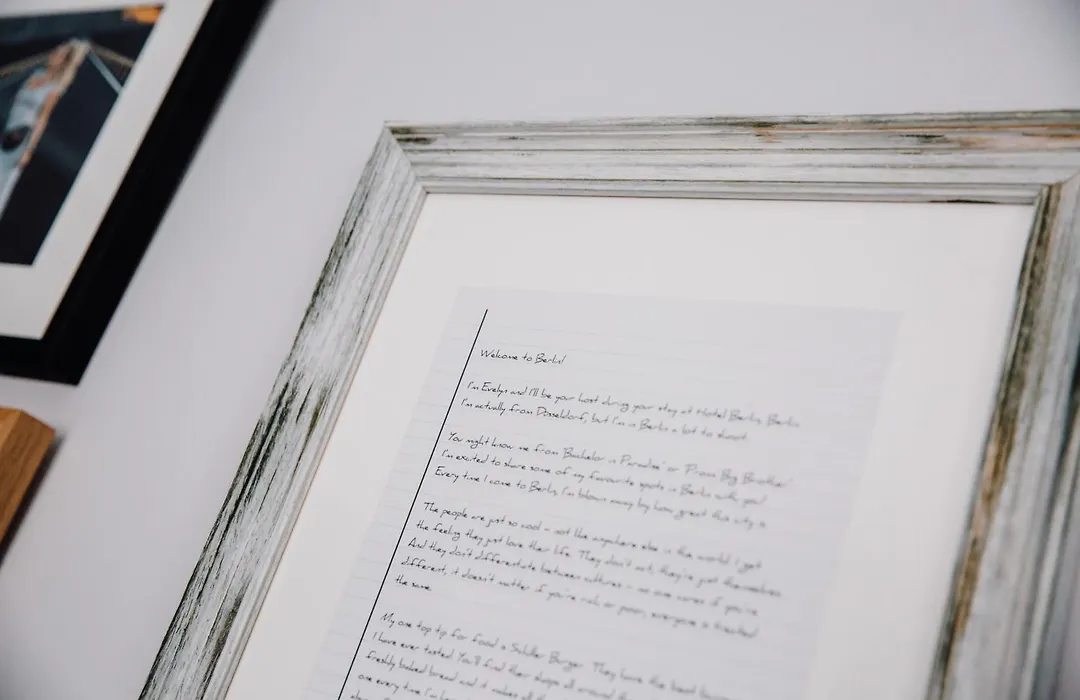 Welcome to Berlin!
I'm Evelyn and I'll be your host during your stay at Hotel Berlin, Berlin
I'm actually from Düsseldorf, but I'm in Berlin a lot to shoot.
You might know me from 'Bachelor in Paradise' or 'Prom Big Brother'
I'm excited to share some of my favourite spots in Berlin with you!
Every time I come to Berlin, I'm blown away by how great this city is
The people are just so cool - not like anywhere else in the world. I get
the feeling they just love their life. They don't act, they're just themselves.
And they don't differentiate between cultures - no one cares if you're
different, it doesn't matter if you're rich or poor, everyone is treated
the same.
My one top tip for food is Schiller Burger. They have the best
I have ever tasted. You'll find their shops all around the
freshly baked bread and it makes all
one every time I'm